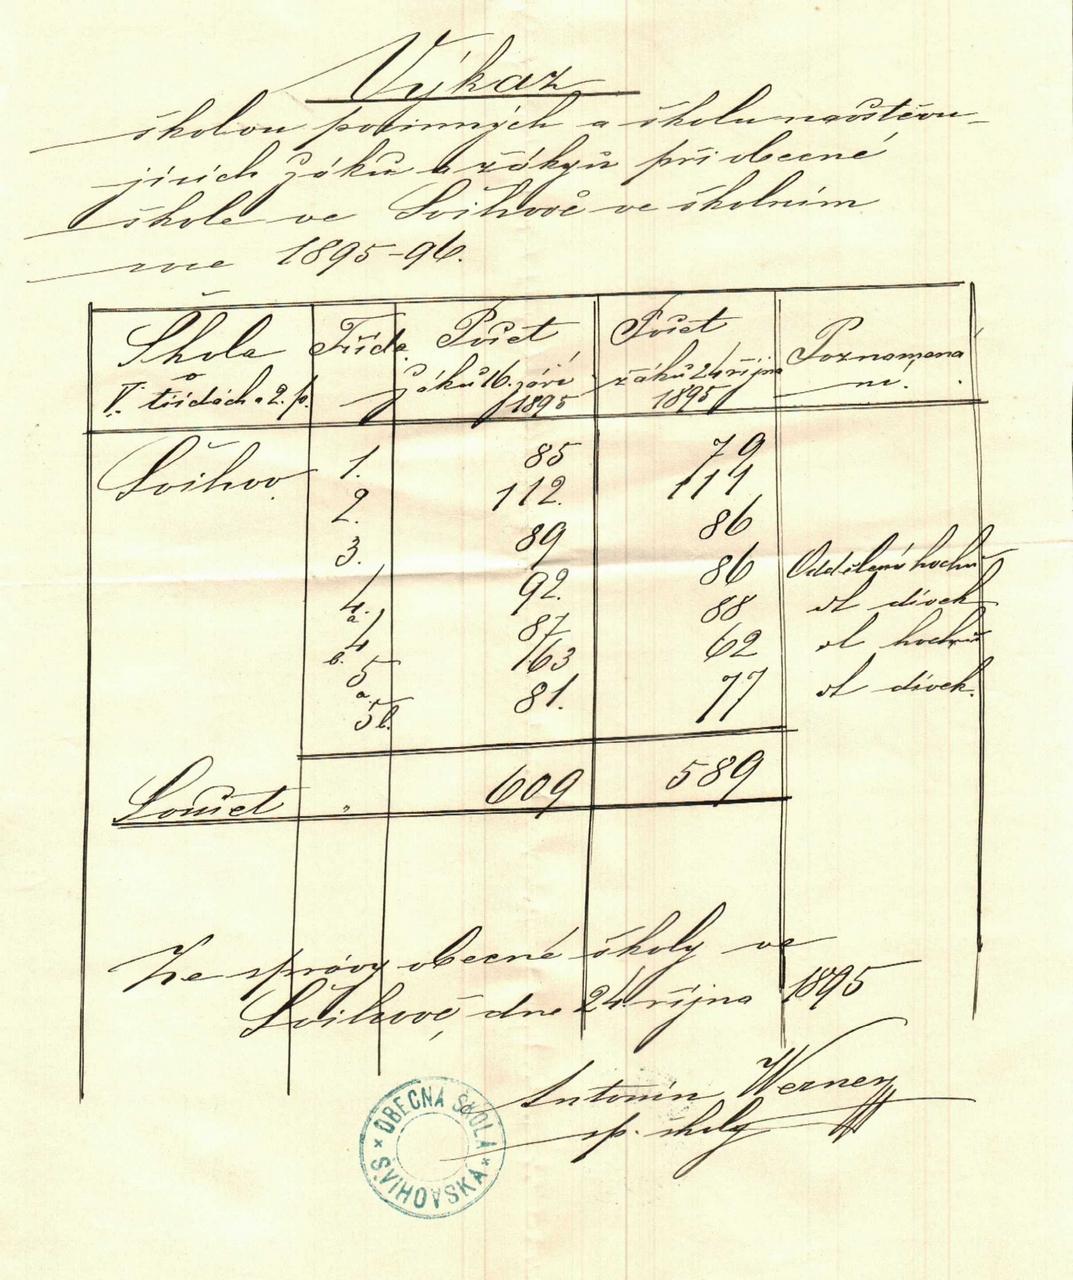 Výkaz
školou povinných a školu navštěvu-
jících žáků a žákyň při obecné
škole ve Švihově ve školním
roce 1895-96.
Škola Třída Počet Počet Poznamená
o žáků 16. září žáků 24 října ní.
V. třídách a 2. p. 1895 1895
Švihov. 1. 85 79
2. 112. 111
3. 89 86
4. a 92. 86 Oddělení hochů
4 b. 87 88 dt dívek
5 a 63 62 dt hochů
5 b. 81. 77 dt dívek.
Součet " 609 589
Ze správy obecné školy ve
Švihově, dne 24. října 1895
Antonín Werner
sp. školy
OBECNÁ ŠKOLA
ŠVIHOVSKÁ